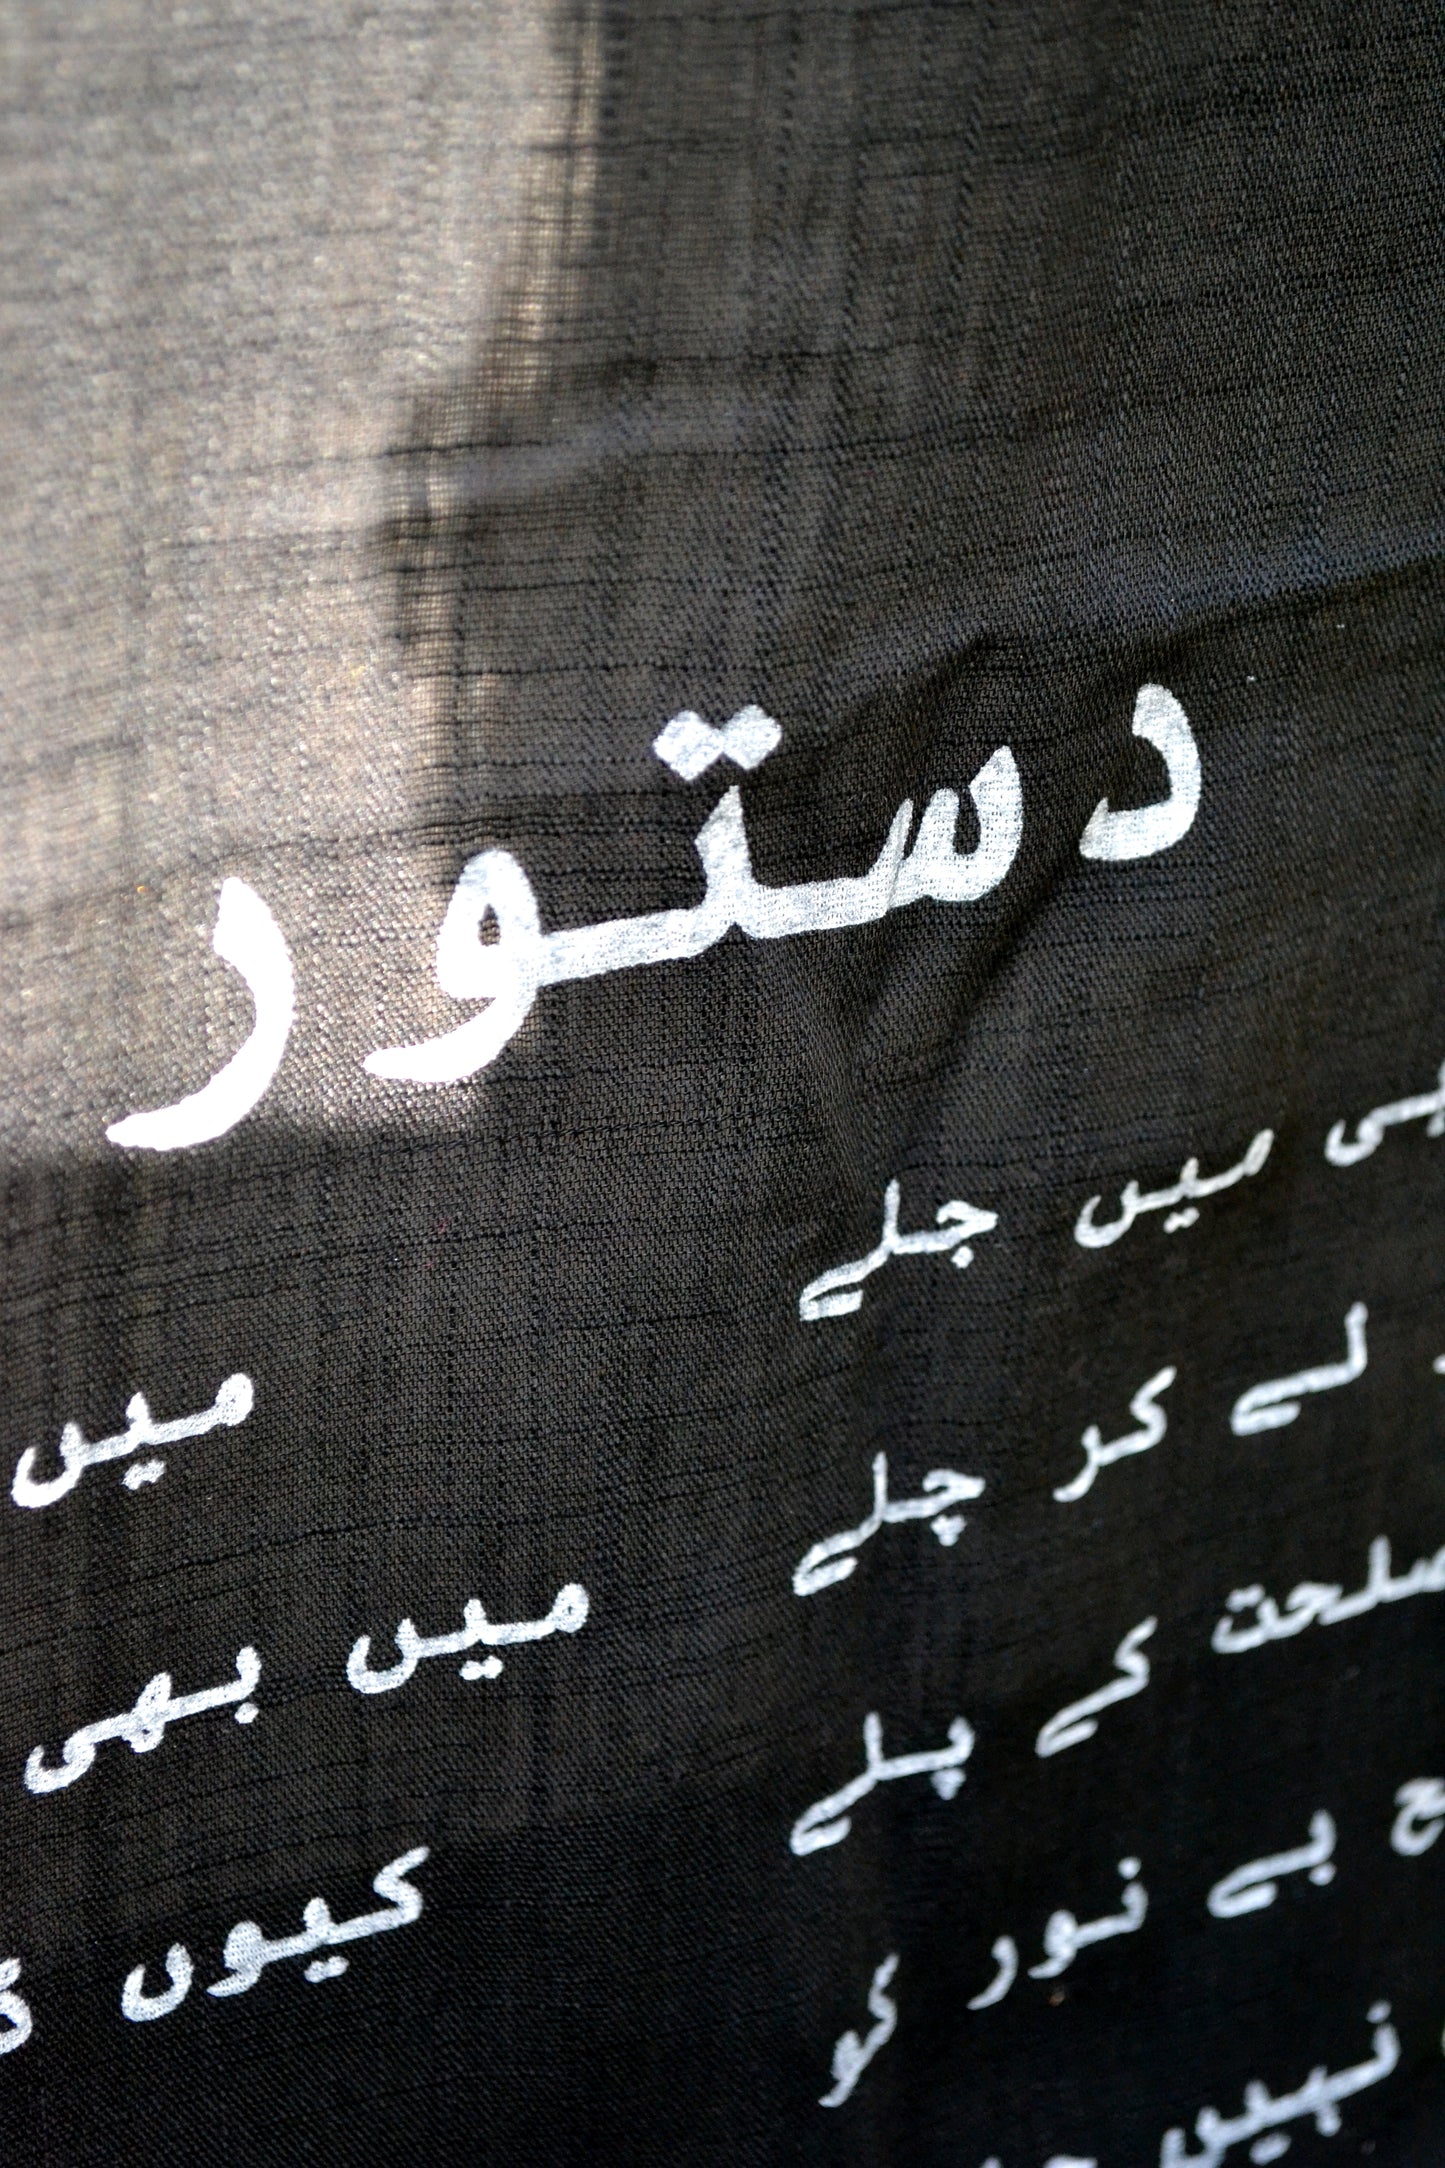 دستور
میں جلے
لے کر چلے
مصلحت کے پلے
بے نور کو
نہیں
میں
میں بھی
کیوں